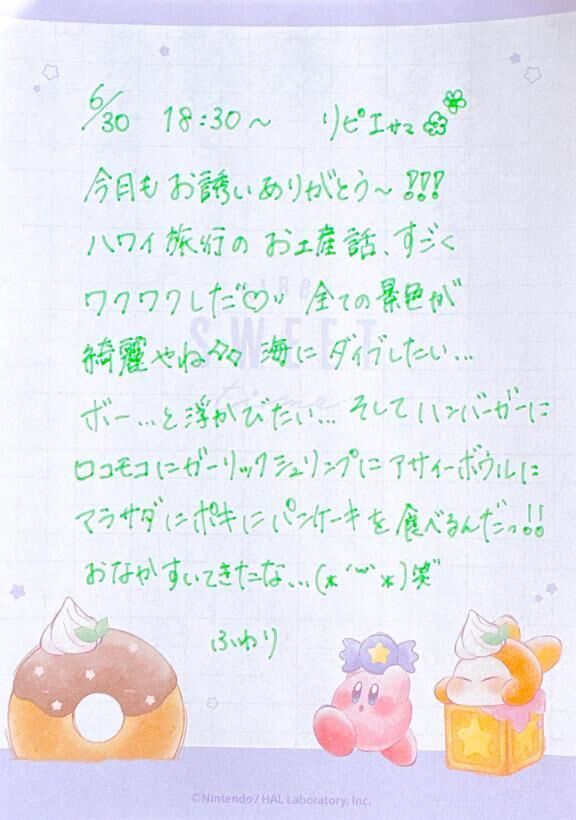 6/30 18:30〜 リピエサマ
今日もお誘いありがとう〜!!!
ハワイ旅行のお土産話、すごく
ワクワクしただ♡〃 全ての景色が
綺麗やね 海にダイブしたい…
ボー…と浮かびたい… そしてハンバーガーに
ロコモコにガーリックシュリンプにアサイーボウルに
マラサダにポキにパンケーキを食べるんだっ!!
おなかすいてきたな…(*´꒳`*)笑
ふわり
SWEET
time
©Nintendo / HAL Laboratory, Inc.